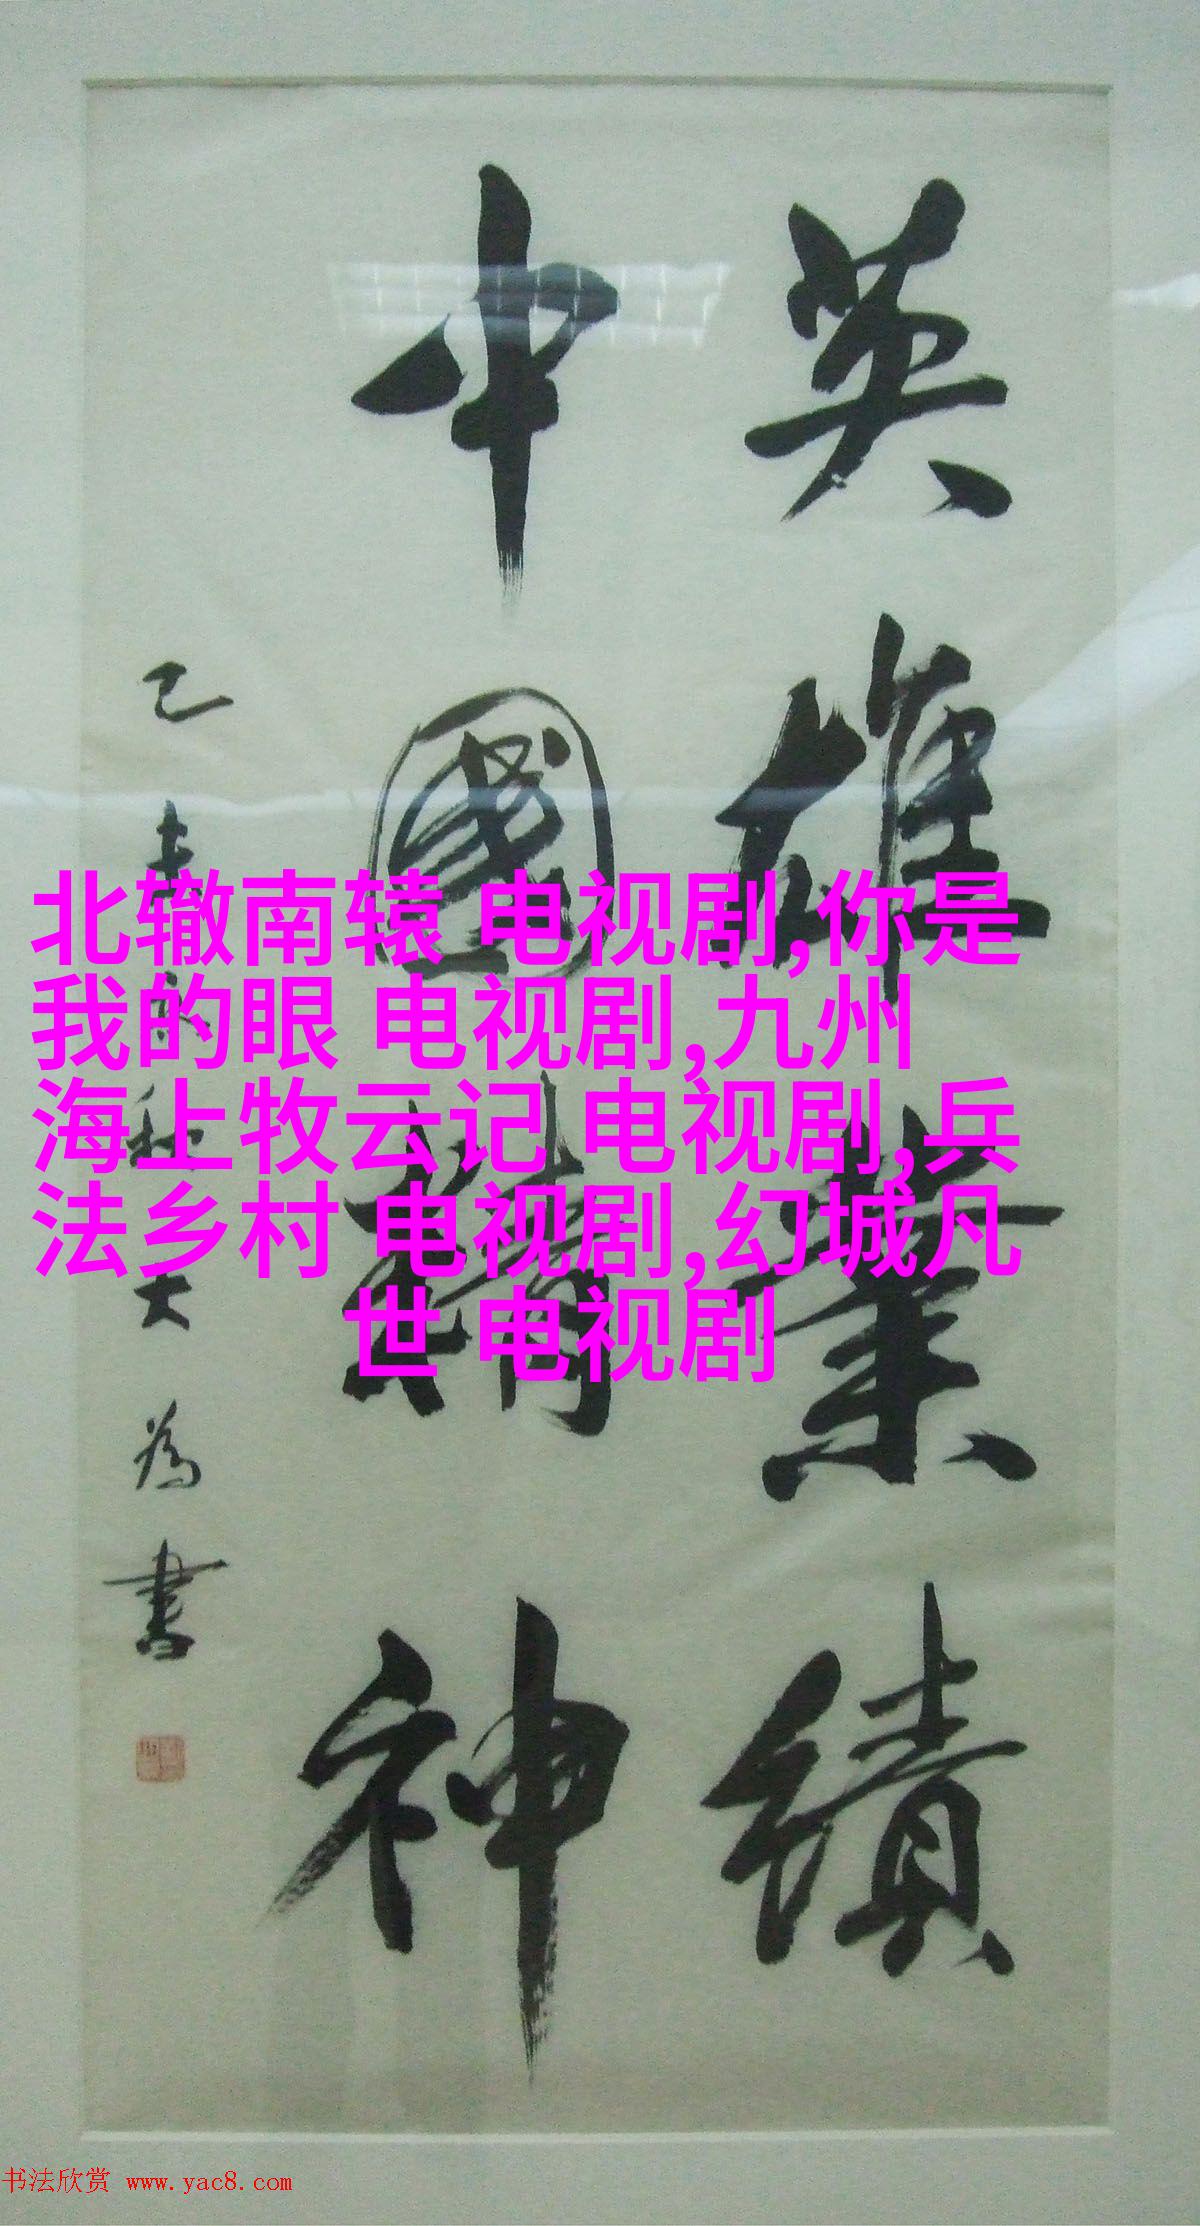 英雄業績
中國精神
大為書
北辙南辕 电视剧,你是
我的眼 电视剧,九州
海上牧云记 电视剧,兵
法乡村 电视剧,幻城凡
世 电视剧
书法欣赏 www.yac8.com